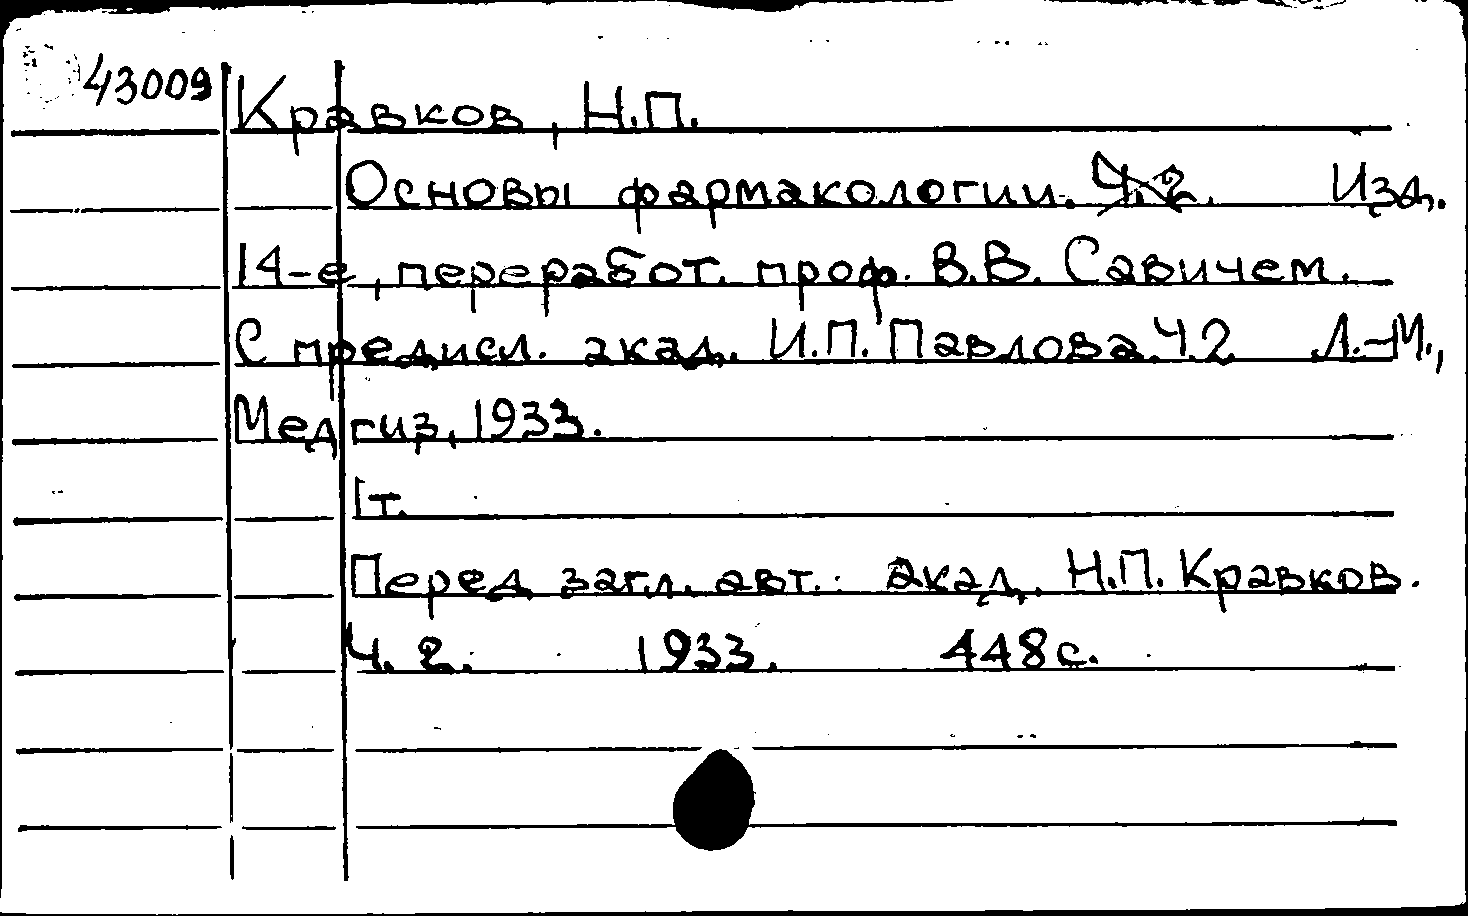 43009 Кравков, Н.П.
Основы фармакологии. Ч.2. Изд.
14-е, переработ. проф. В.В. Савичем.
С предисл. акад. И.П. Павлова.Ч.2 Л.-М.,
Медгиз, 1933.
1т.
Перед загл. авт.: акад. Н.П. Кравков.
Ч. 2. 1933. 448с.